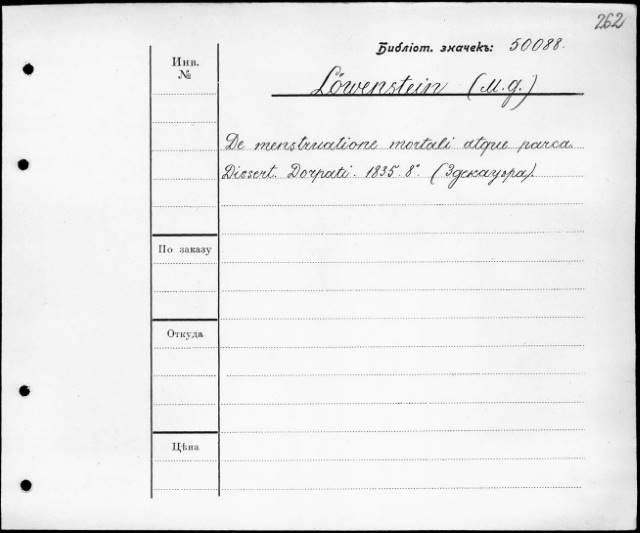 262
Библіот. значекъ: 50088.
Инв.
№
Löwenstein (M. g.)
De menstruatione mortali atque parca.
Dissert. Dorpati. 1835. 8°. (Здекауэра).
По заказу
Откуда
Цѣна